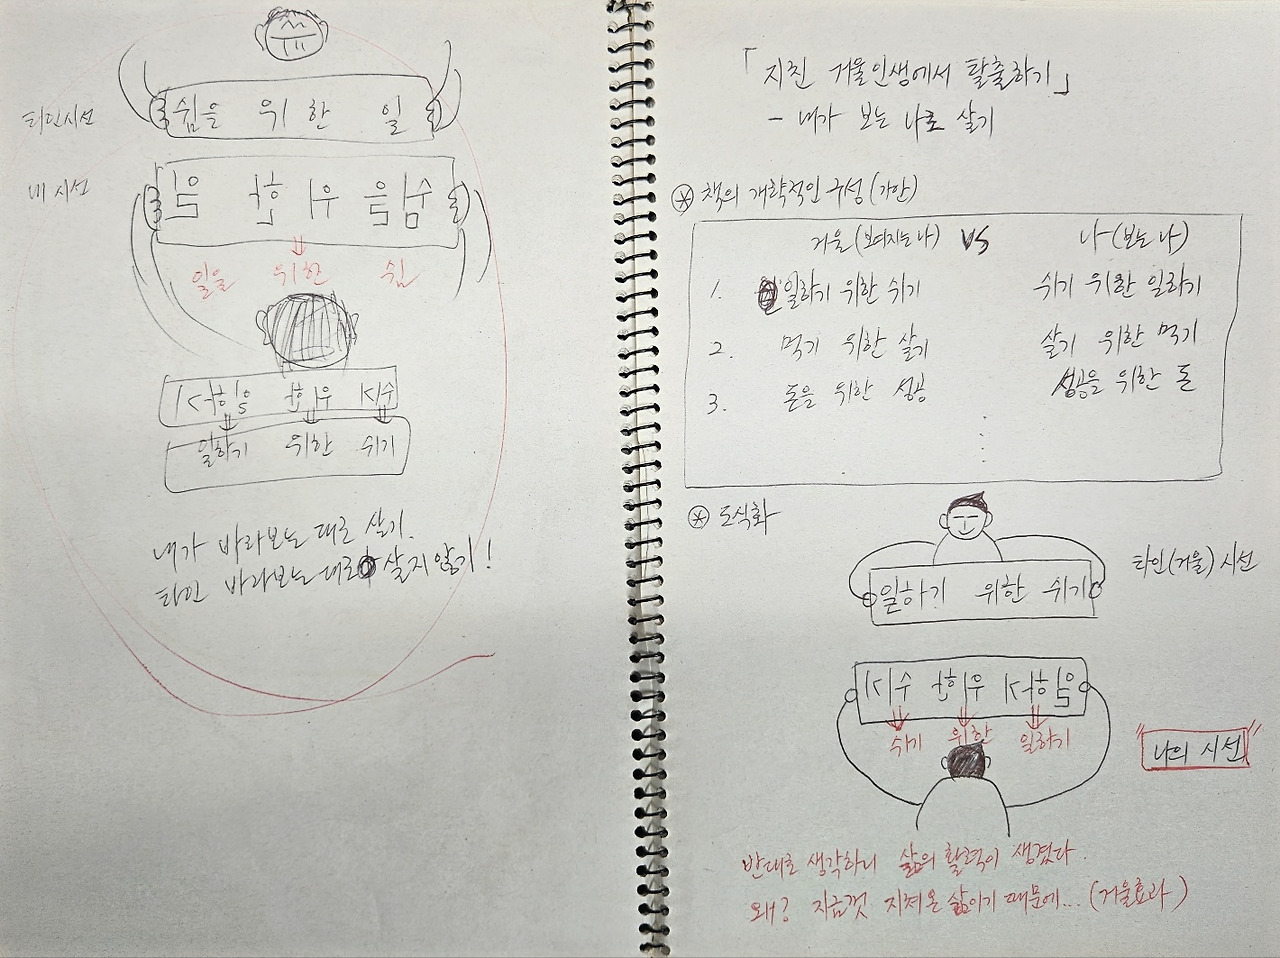 타인시선
쉼을 위한 일
내 시선
쉼을 위한 일
일을 위한 쉼
쉬기 위한 일하기
일하기 위한 쉬기
내가 바라보는 대로 살기.
타인 바라보는 대로 살지 않기!
「지친 거울인생에서 탈출하기」
- 내가 보는 나로 살기
※ 책의 개략적인 구성 (가안)
거울 (보여지는 나) VS 나 (보는 나)
1. 일하기 위한 쉬기 쉬기 위한 일하기
2. 먹기 위한 살기 살기 위한 먹기
3. 돈을 위한 성공 성공을 위한 돈
※ 도식화
타인(거울) 시선
일하기 위한 쉬기
일하기 위한 쉬기
쉬기 위한 일하기
"나의 시선"
반대로 생각하니 삶의 활력이 생겼다.
왜? 지금껏 지쳐온 삶이기 때문에... (거울효과)